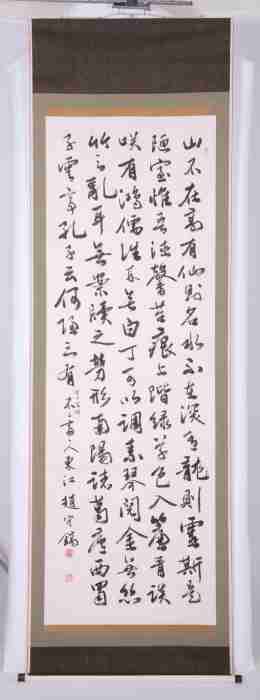 山不在高有仙則名水不在深有龍則靈斯是
陋室惟吾德馨苔痕上階綠草色入簾青談
咲有鴻儒往來無白丁可以調素琴閱金無絲
竹之亂耳無案牘之勞形南陽諸葛廬西蜀
子雲亭孔子云何陋之有
人東江趙守鎬